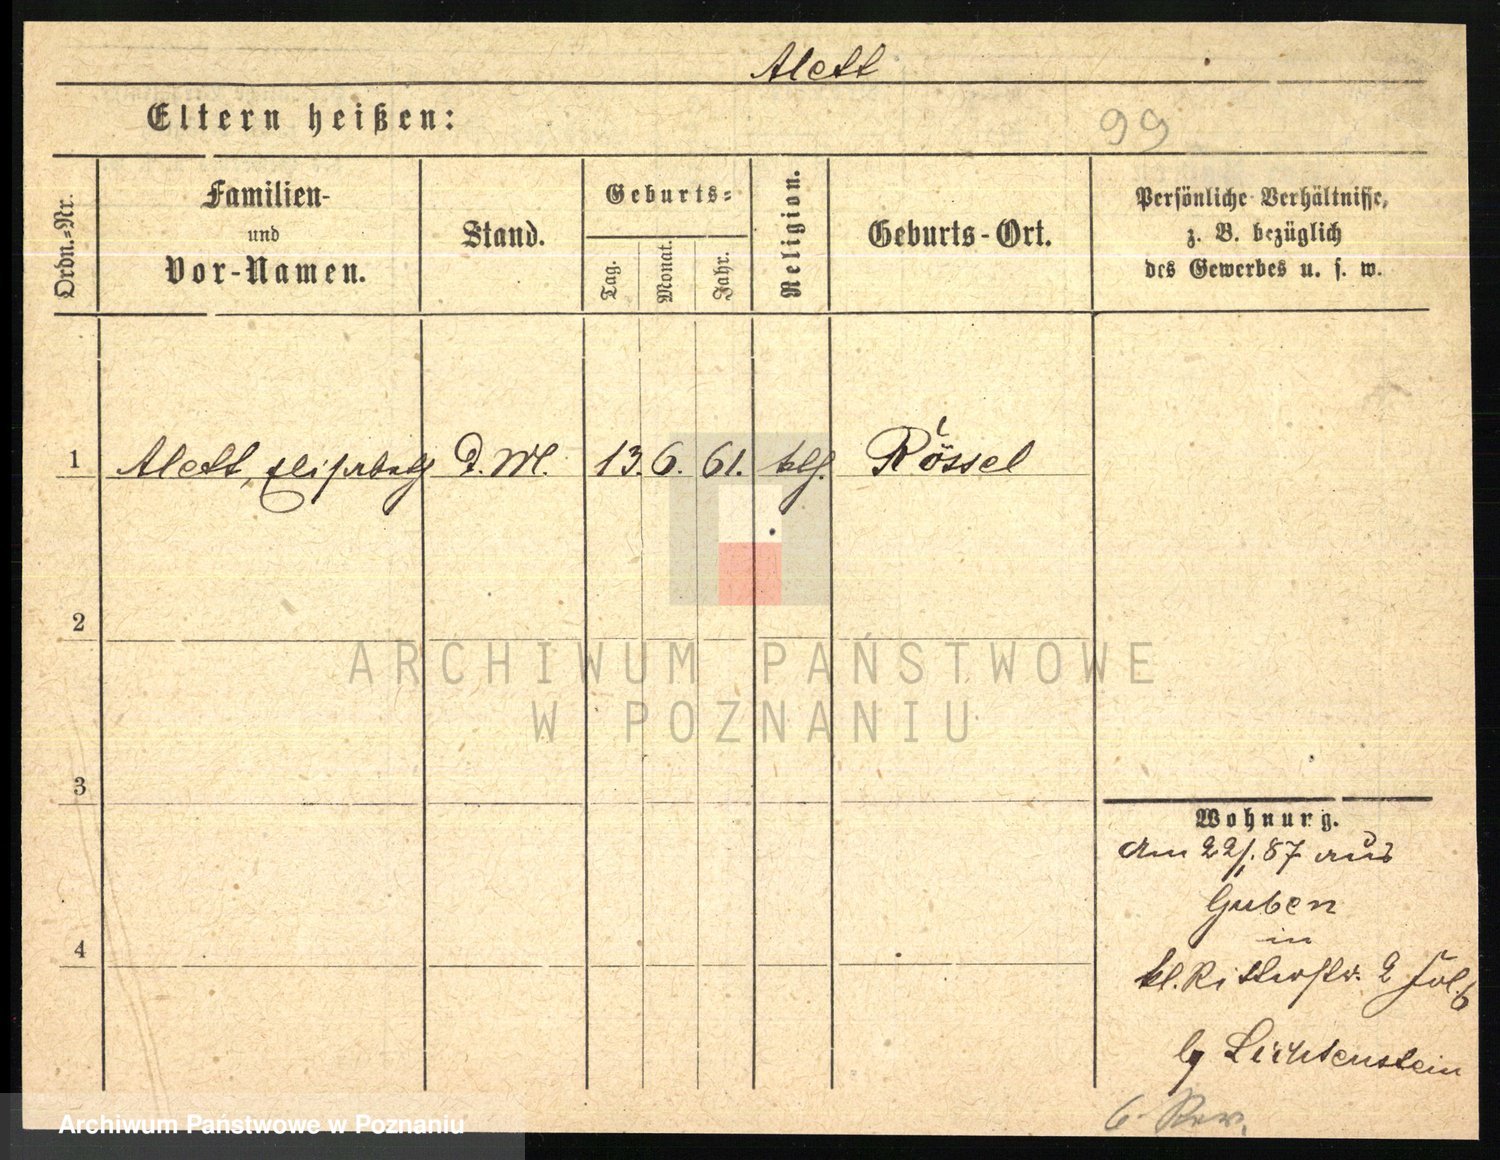 Alett
Eltern heißen:
99
Ordn.-Nr.
Familien-
und
Vor-Namen.
Stand.
Geburts-
Tag.
Monat.
Jahr.
Religion.
Geburts-Ort.
Persönliche Verhältnisse,
z. B. bezüglich
des Gewerbes u. s. w.
1 Alett, Elisabeth D. M. 13. 6. 61. klg. Rössel
2
ARCHIWUM PAŃSTWOWE
W POZNANIU
3
Wohnung.
Am 22/1. 87 aus
Guben
in
4
kl. Ritterstr. 2 Fol. 6
Lichtenstein
6. Rev.
Archiwum Państwowe w Poznaniu